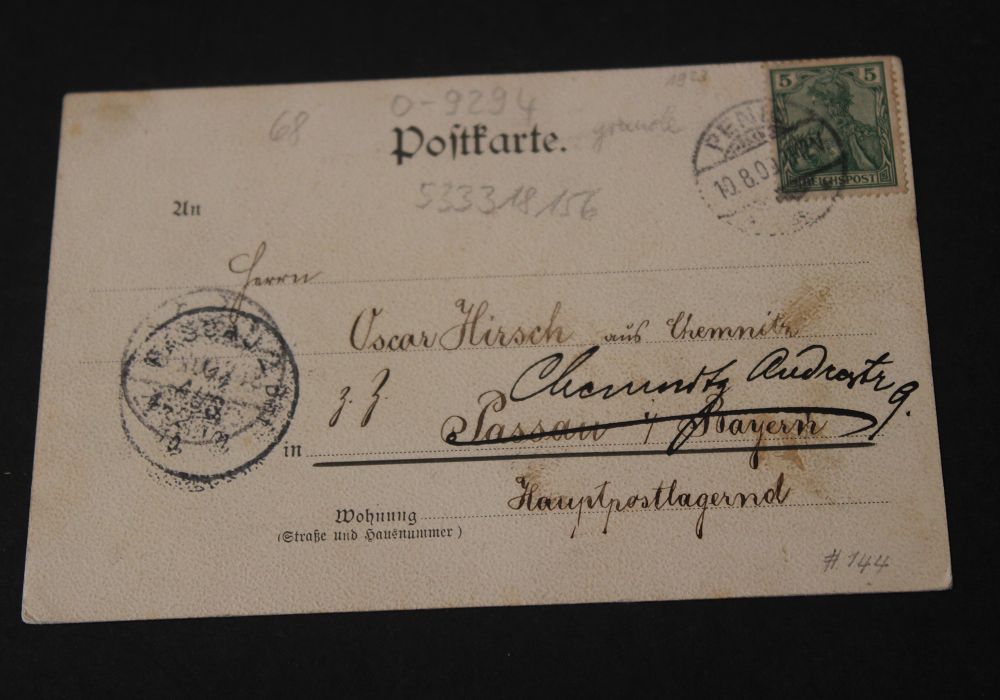 68
O-9294
5
5
Postkarte.
PENIG
10.8.0
REICHSPOST
An
533318/156
Herrn
Oscar Hirsch aus Chemnitz
Chemnitz Andrestr 9.
z. Z.
in Passau i/ Bayern
Hauptpostlagernd
PASSAU 2
Wohnung
(Straße und Hausnummer)
#144